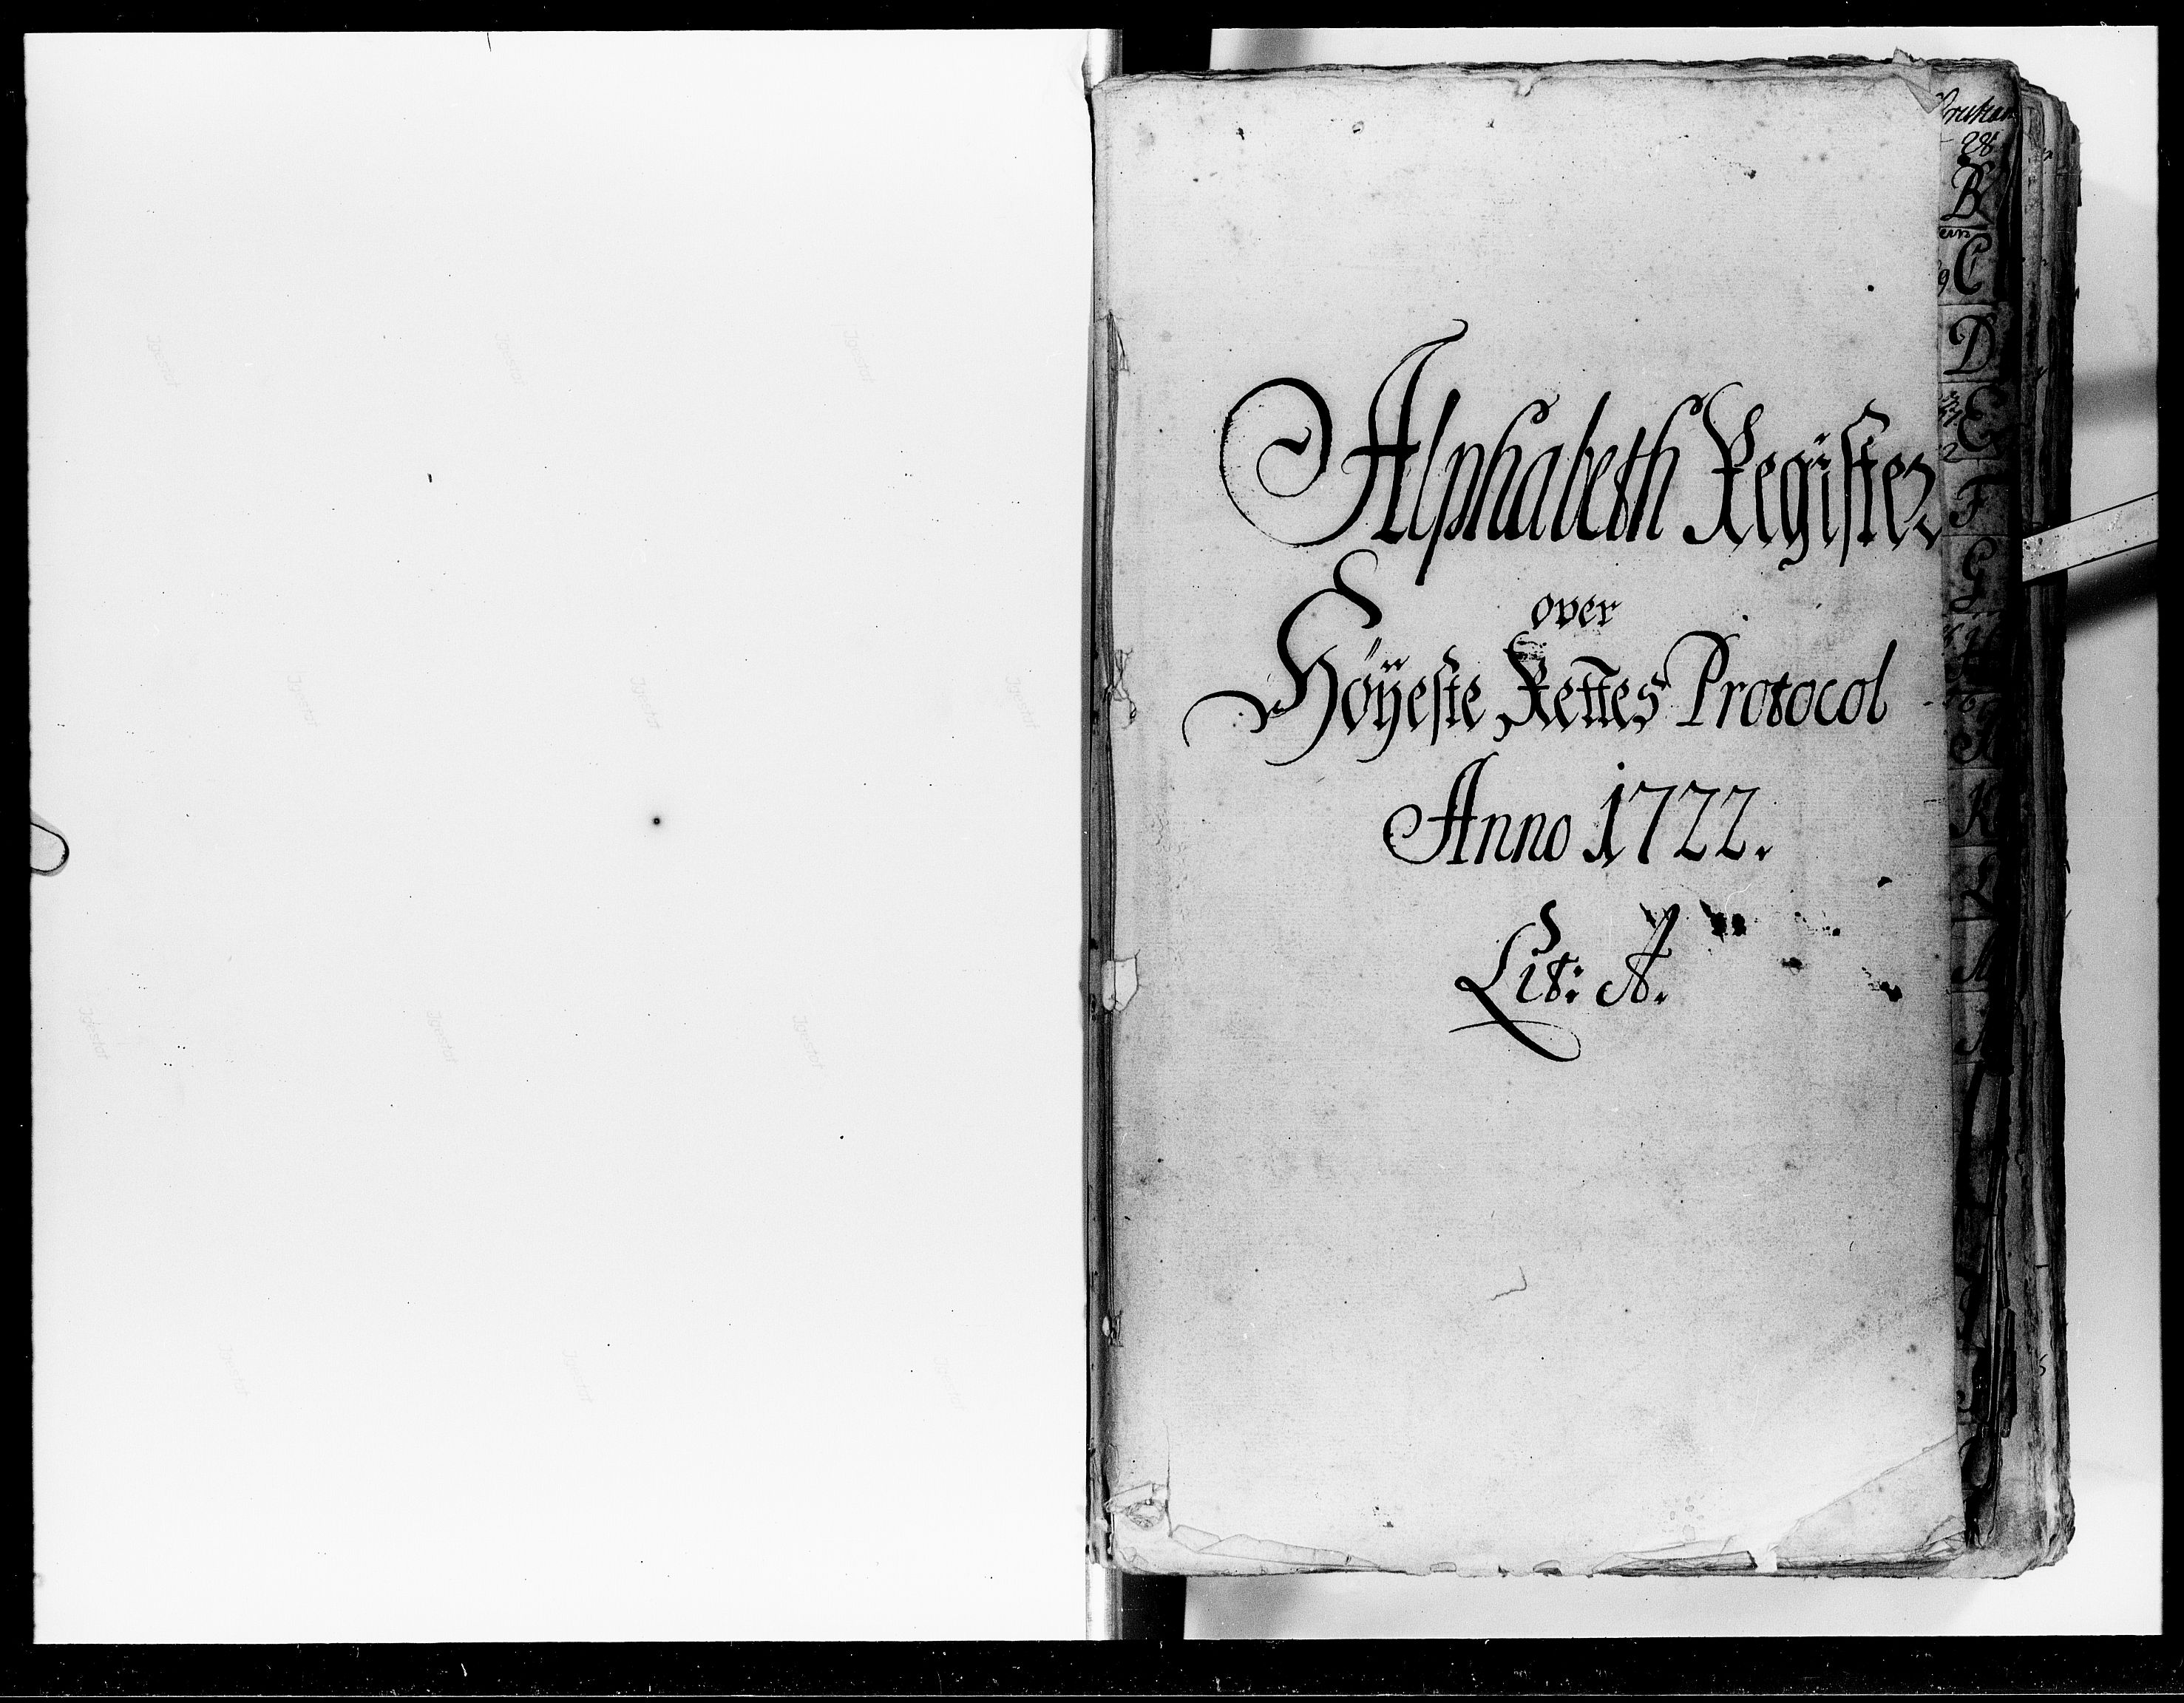 Alphabeth Register
over
Höÿeste Rettes Protocol
Anno 1722.
Lit: A.
28
B
C
D
E
F
G
K
L